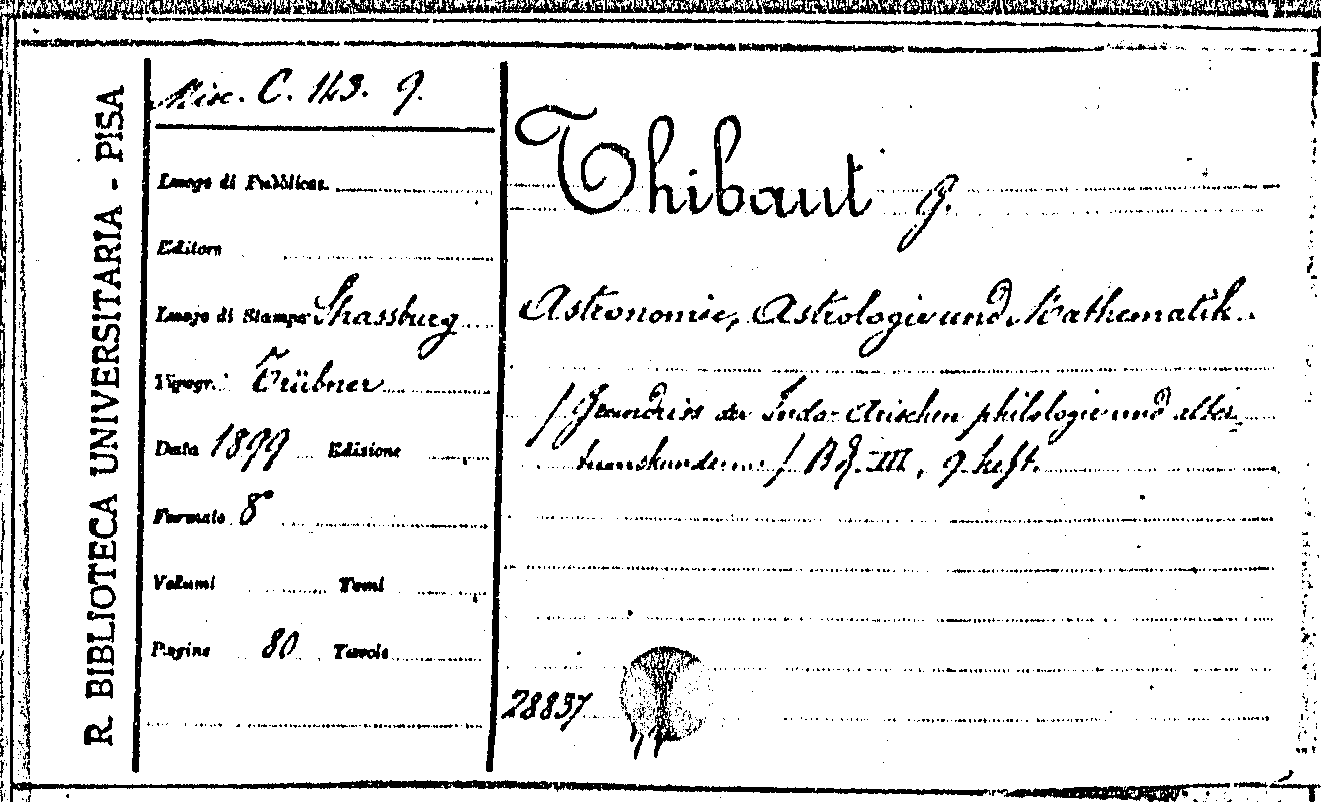 R. BIBLIOTECA UNIVERSITARIA - PISA
Misc. C. 143. 9.
Luogo di Pubblicaz.
Editore
Luogo di Stampa Strassburg
Tipogr. Trübner
Data 1899 Edizione
Formato 8°
Volumi Tomi
Pagine 80 Tavole
Thibaut G.
Astronomie, Astrologie und Mathematik.
/ Grundriss der Indo-Arischen philologie und alter-
tumskunde / Bd. III, 9. heft.
28837